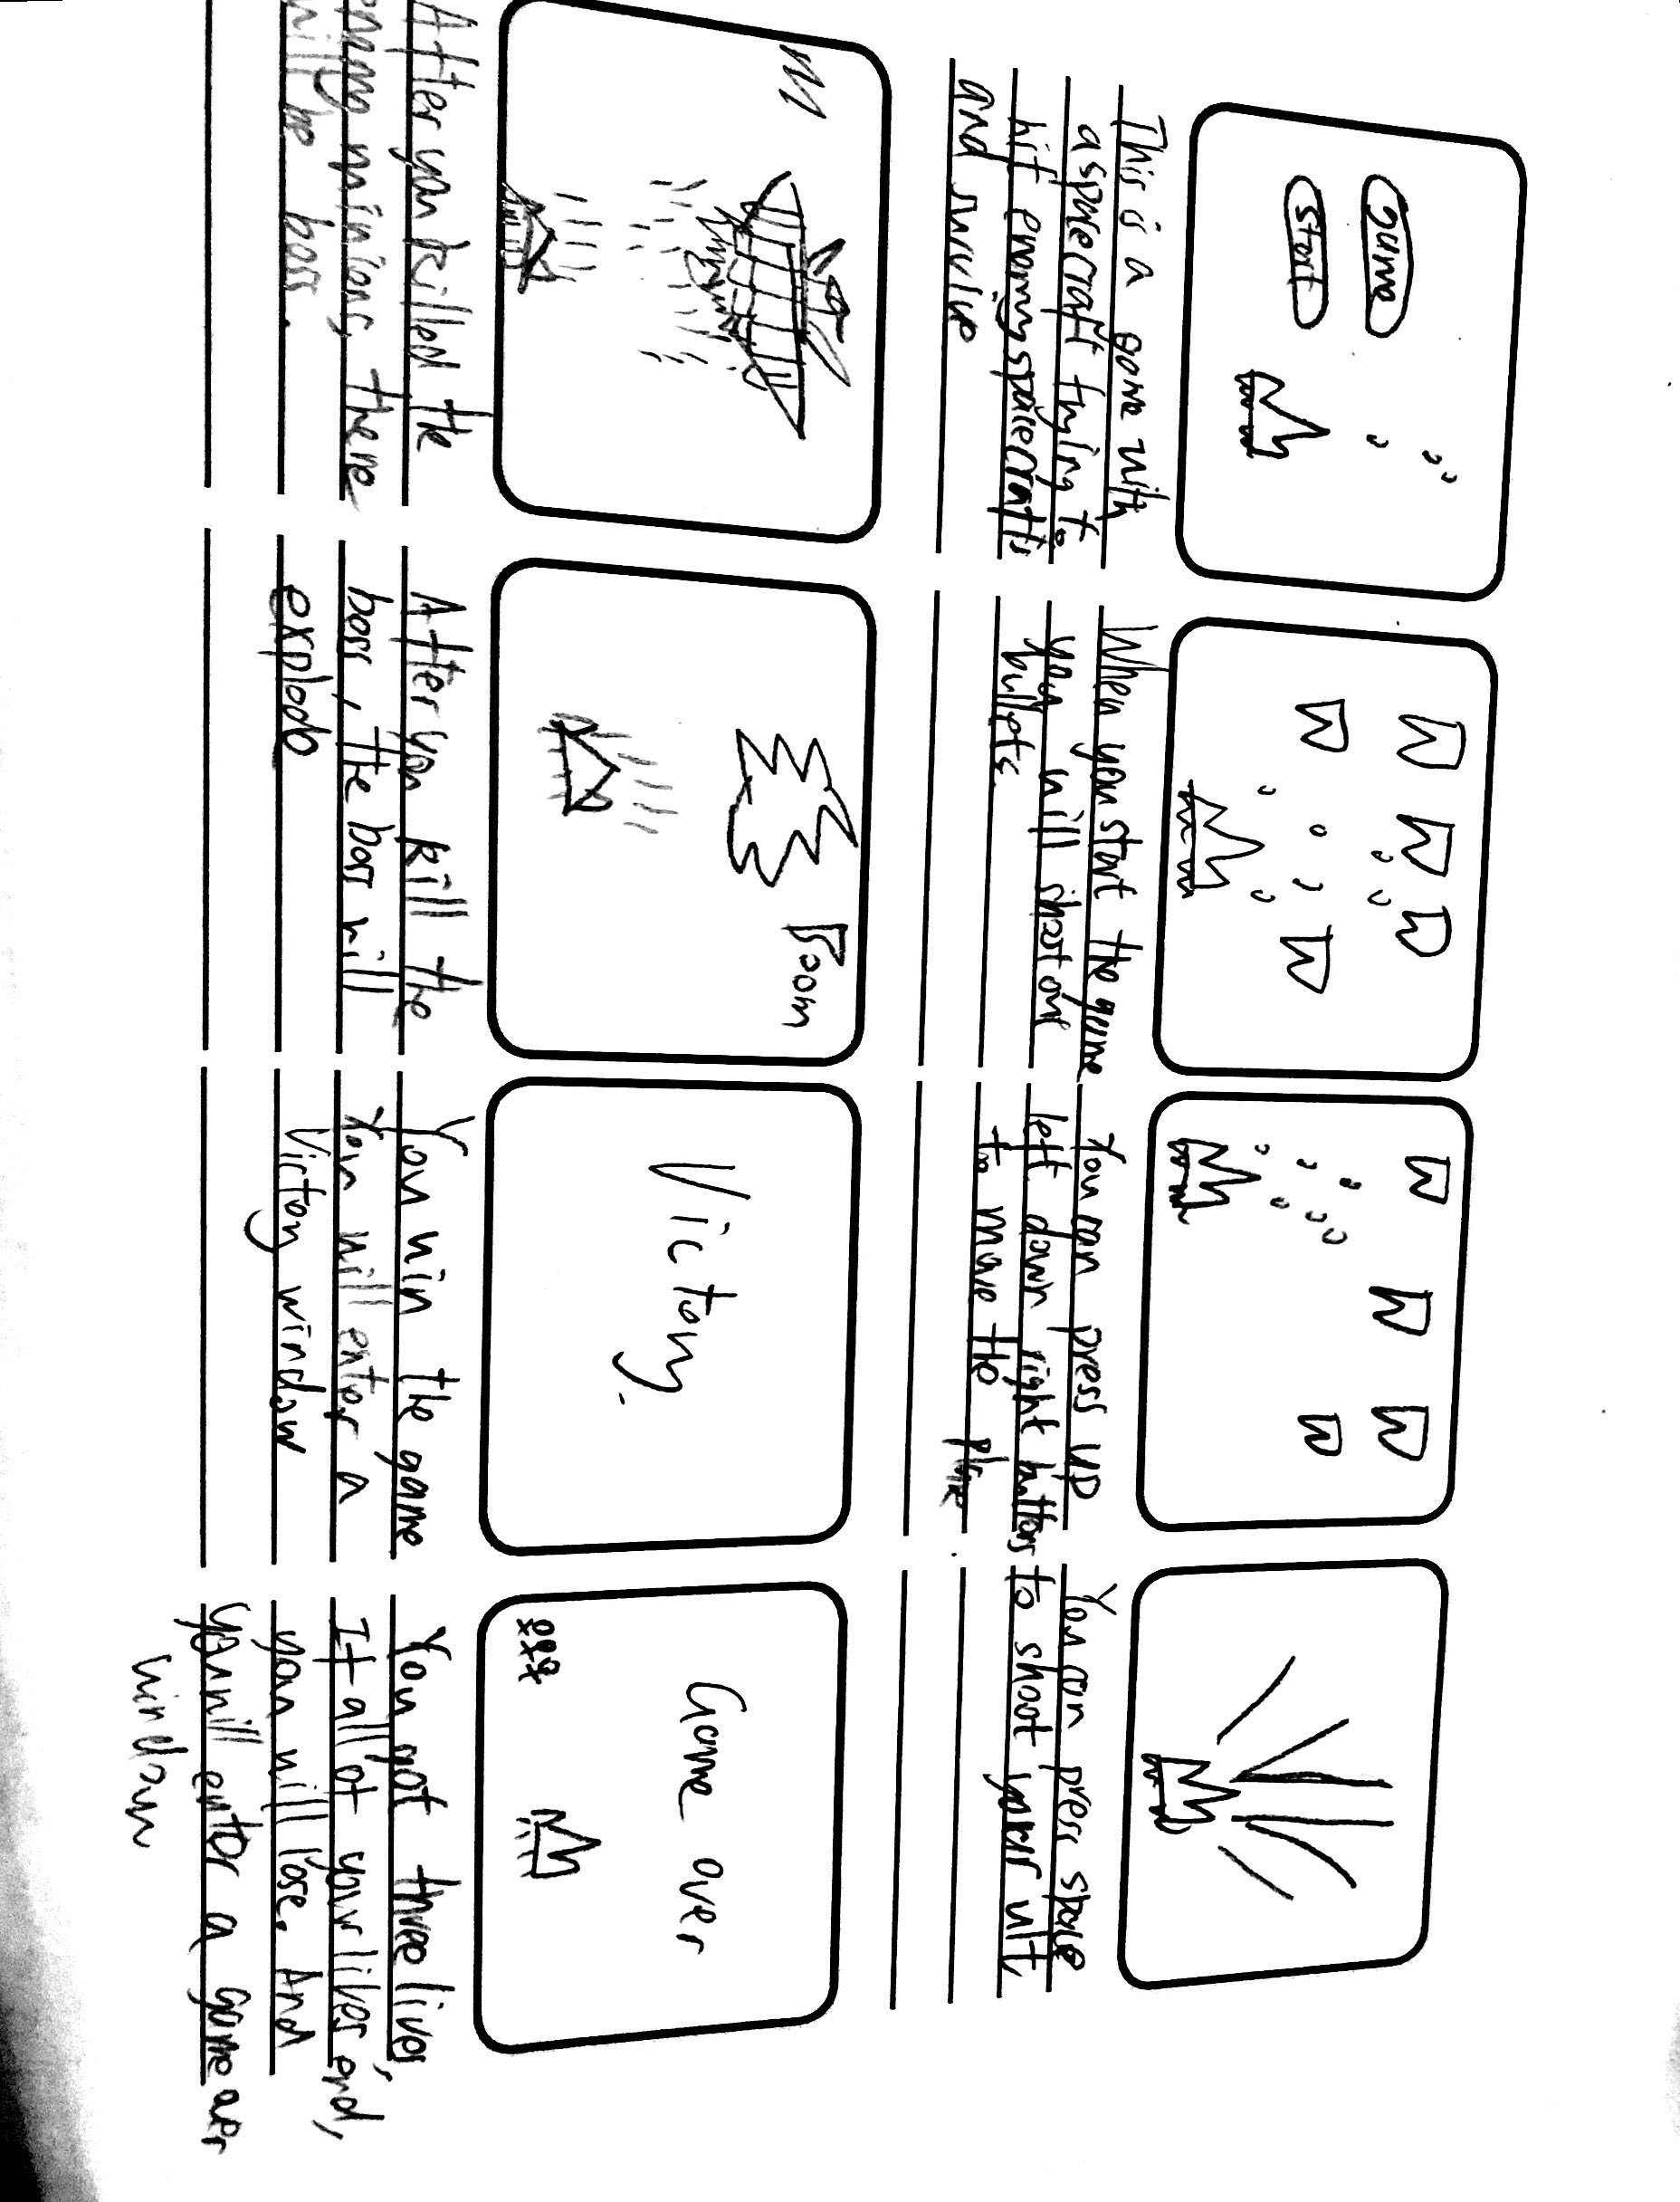 game
start
This is a game with
a spacecraft trying to
hit enemy spacecrafts
and survive
When you start the game
you will shoot out
bullets.
You can press UP
left down right buttons
to move the
You can press space
to shoot your ult,
After you killed the
enemy minions, there
will be boss.
Boom
After you kill the
boss, the boss will
explode
Victory.
You win the game
You will enter a
Victory window
Game over
You got three lives,
If all of your lives end,
you will lose. And
you will enter a game over
window